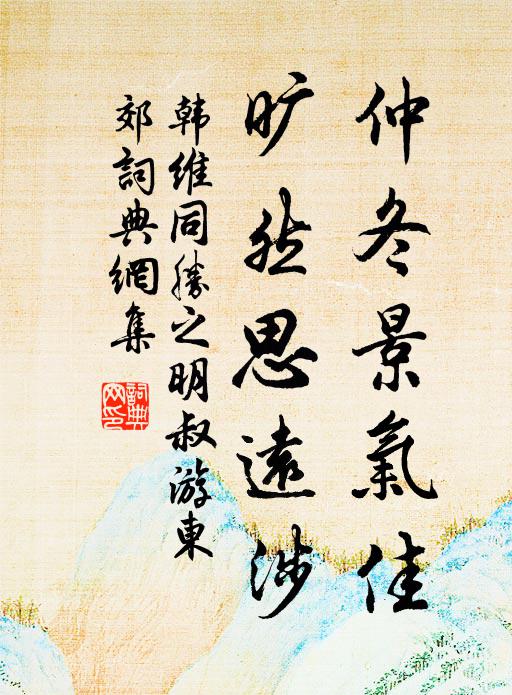 仲冬景氣佳
旷然思遠涉
韩維同勝之明叔游東
郊詞典網集
詞典网印